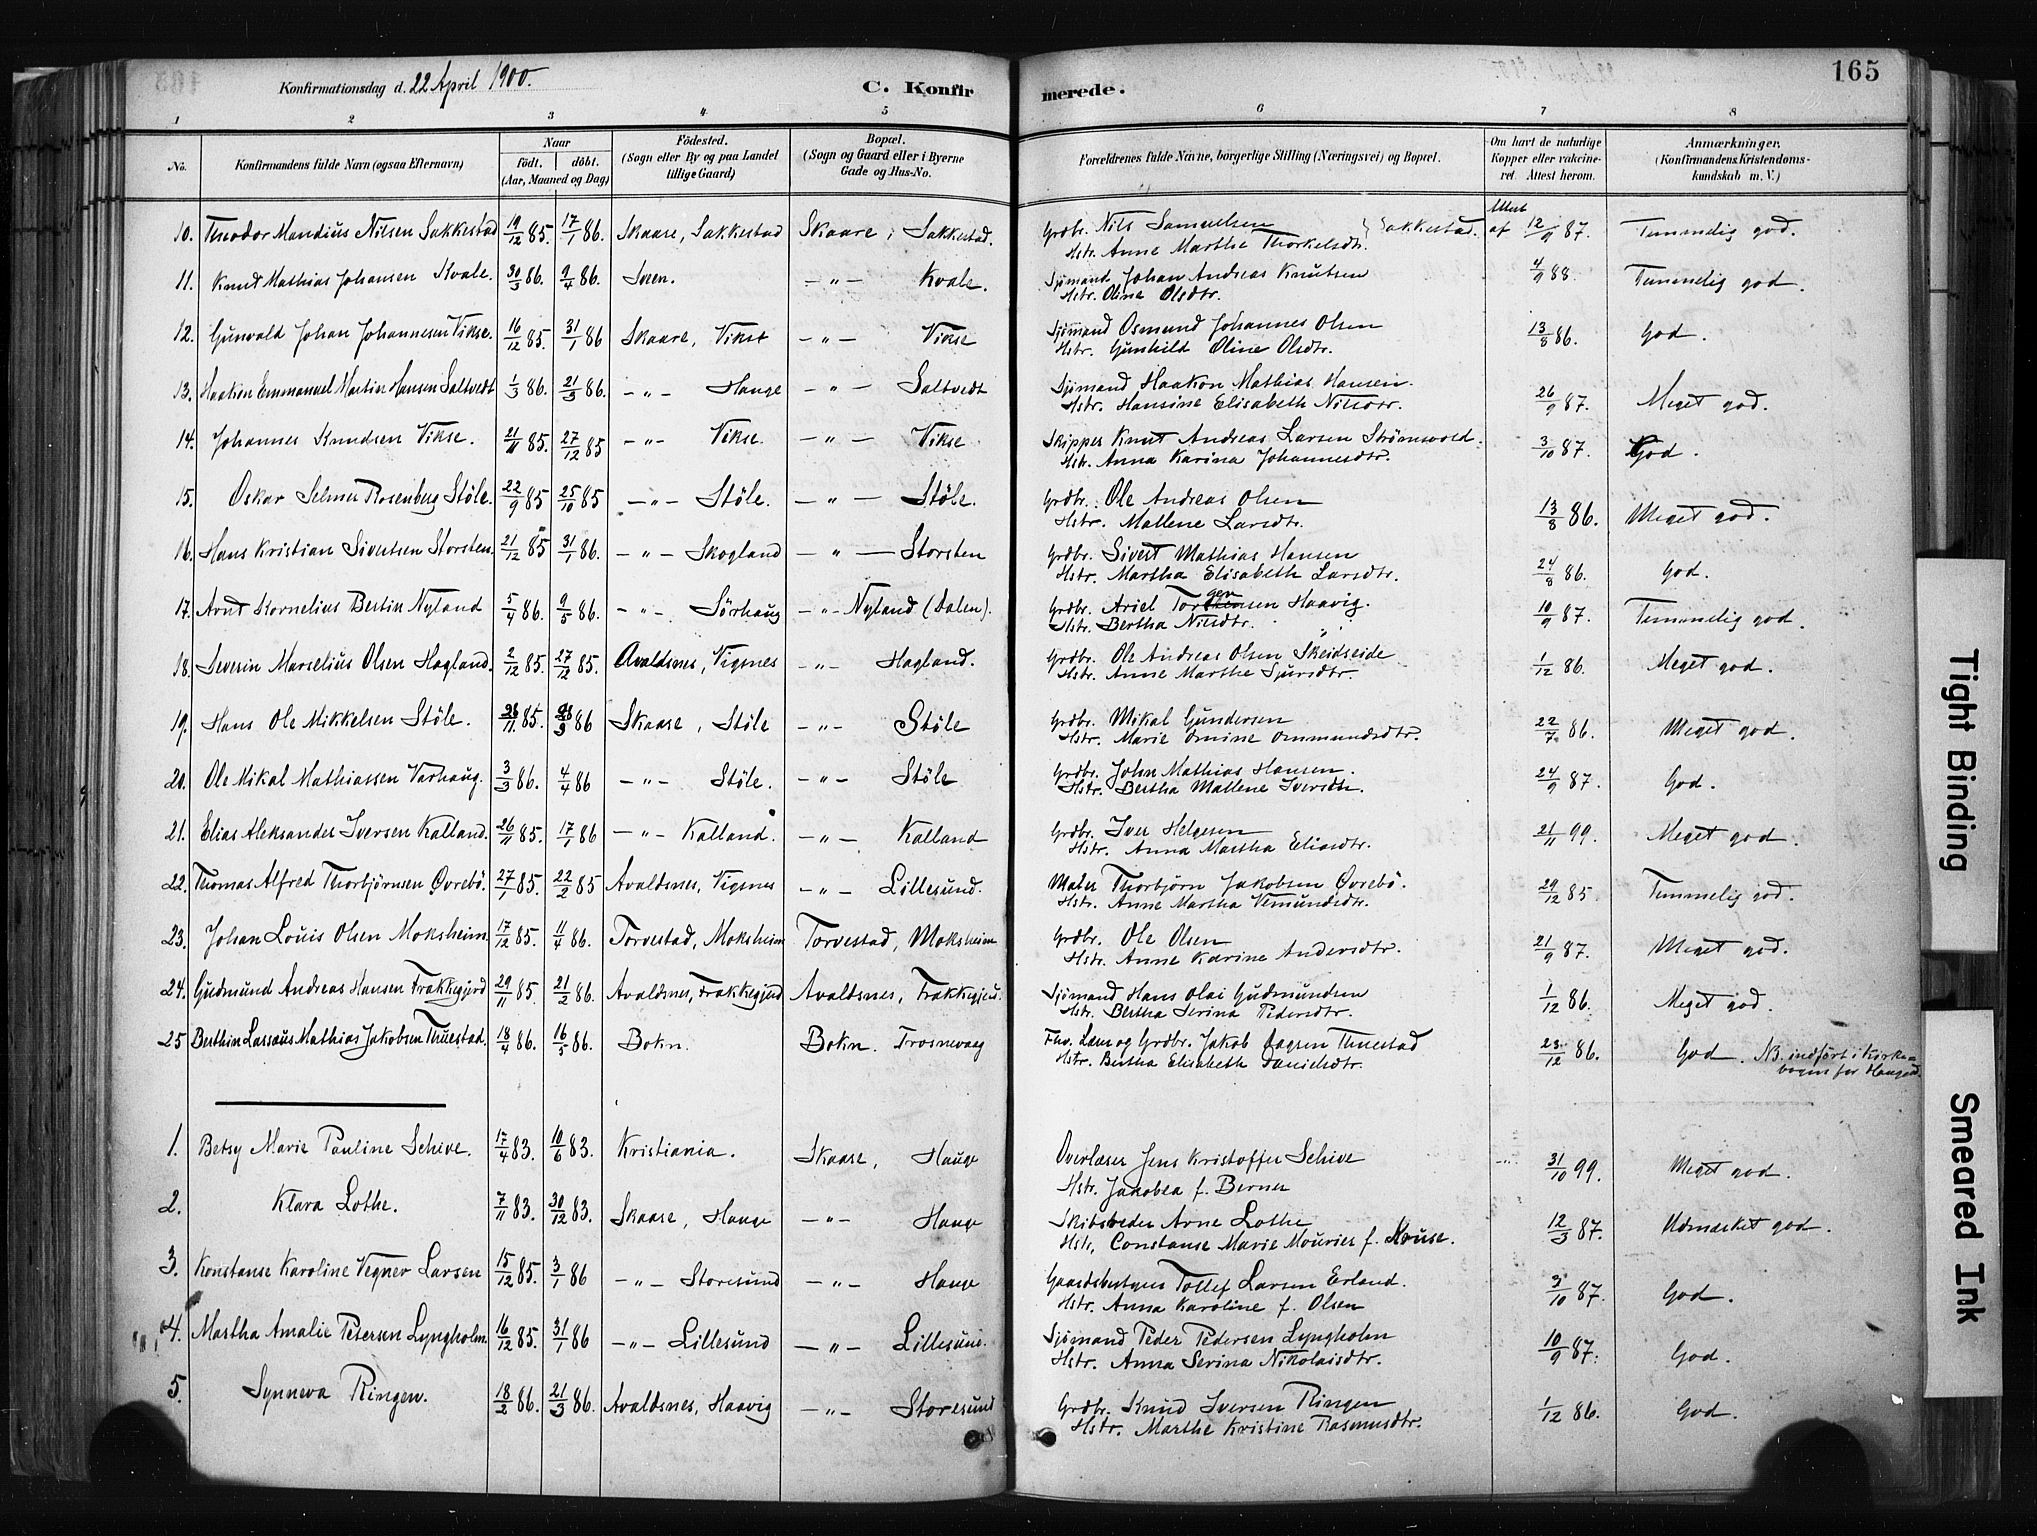 Konfirmationsdag d. 22 April 1900.
C. Konfirmerede.
165
1 2 3 4 5 6 7 8
No.
Konfirmandens fulde Navn (ogsaa Efternavn)
Naar
født. døbt.
(Aar, Maaned og Dag)
Födested.
(Sogn eller By og paa Landet
tillige Gaard)
Bopæl.
(Sogn og Gaard eller i Byerne
Gade og Hus-No.
Forældrenes fulde Navne, borgerlige Stilling (Næringsvei) og Bopæl.
Om havt de naturlige
Kopper eller vakcine-
ret. Attest herom.
Anmærkninger.
(Konfirmandens Kristendoms-
kundskab m. V.)
10. Theodor Mandius Nilsen Sakkestad 19/12 85. 17/1 86. Skaare, Sakkestad Skaare, Sakkestad. Grdbr. Nils Samuelsen } Sakkestad. Attest af 12/9 87. Temmelig god.
Hstr. Anne Marthe Thorkelsdtr.
11. Knut Mathias Johansen Kvale. 30/3 86. 9/4 86. Sveen. — " — Kvale. Sjømand Johan Andreas Knutsen 4/9 88. Temmelig god.
Hstr. Oline Olsdtr.
12. Gunvald Johan Johannesen Vikse. 16/12 85. 31/1 86 Skaare, Vikse — " — Vikse Sjømand Osmund Johannes Olsen 13/8 86. God.
Hstr. Gunhild Oline Olsdtr.
13. Haakon Emmanuel Martin Hansen Saltvedt 1/3 86. 21/3 86. — " — Hauge — " — Saltvedt Sjømand Haakon Mathias Hansen. 26/9 87. Meget god.
Hstr. Hansine Elisabeth Nilsdtr.
14. Johannes Knudsen Vikse. 21/11 85. 27/12 85 — " — Vikse. — " — Vikse. Skipper Knut Andreas Larsen Strømsvold. 3/10 87. God.
Hstr. Anna Karina Johannesdtr.
15. Oskar Selmer Rosenberg Støle. 22/9 85 25/10 85 — " — Støle. — " — Støle. Grdbr. Ole Andreas Olsen 13/8 86. Meget god.
Hstr. Mallene Larsdtr.
16. Hans Kristian Sivertsen Storsten. 21/12 85 31/1 86. — " — Skogland — " — Storsten Grdbr. Sivert Mathias Hansen 24/8 86. God.
Hstr. Martha Elisabeth Larsdtr.
17. Arnt Kornelius Bertin Nyland 5/4 86. 9/5 86. — " — Sørhaug — " — Nyland (Dalen). Grdbr. Ariel Torgensen Haavig. 10/9 87. Temmelig god.
Hstr. Bertha Nilsdtr.
18. Severin Marselius Olsen Hagland. 2/12 85. 27/12 85. Avaldsnes, Vigsnes — " — Hagland. Grdbr. Ole Andreas Olsen Skeidseide 1/12 86. Meget god.
Hstr. Anne Marthe Sjursdtr.
19. Hans Ole Mikkelsen Støle. 26/11 85. /3 86 Skaare, Støle — " — Støle Grdbr. Mikal Gundersen 22/7. 86. Meget god.
Hstr. Marie Omine Ommundsdtr.
20. Ole Mikal Mathiassen Varhaug. 3/3 86. 4/4 86 — " — Støle. — " — Støle Grdbr. John Mathias Hansen. 24/9 87. God.
Hstr. Bertha Mallene Iversdtr.
21. Elias Aleksander Iversen Kalland. 26/11 85. 17/1 86 — " — Kalland. — " — Kalland Grdbr. Iver Helgesen 21/11 99. Meget god.
Hstr. Anna Martha Eliasdtr.
22. Thomas Alfred Thorbjørnsen Øvrebø. 27/1 85. 22/2 85 Avaldsnes, Vigsnes — " — Lillesund. Maler Thorbjørn Jakobsen Øvrebø. 29/12 85. Temmelig god.
Hstr. Anne Martha Vemundsdtr.
23. Johan Louis Olsen Moksheim. 17/12 85. 11/4 86. Torvestad, Moksheim Torvestad, Moksheim Grdbr. Ole Olsen 21/9 87. Meget god.
Hstr. Anne Karine Andersdtr.
24. Gudmund Andreas Hansen Trakkegjerd 29/11 85. 21/2 86. Avaldsnes, Trakkegjerd Avaldsnes, Trakkegjerd. Sjømand Hans Olai Gudmundsen 1/12 86. Meget god.
Hstr. Bertha Serina Pedersdtr.
25 Berthin Lassæus Mathias Jakobsen Thuestad. 18/4 86. 16/5 86. Bokn. Bokn. Trosnevaag Fhv. Læns og Grdbr. Jakob Aagsen Thuestad 23/12 86. God. NB. indført i Kirke=
Hstr. Bertha Elisabeth Danielsdtr. bogen for Haugesd.
1. Betsy Marie Pauline Schive. 17/4 83. 10/6 83. Kristiania. Skaare, Hauge Overlærer Jens Kristoffer Schive 31/10 99. Meget god.
Hstr. Jakobea f. Berner
2. Klara Lothe. 7/11 83. 30/12 83. Skaare, Hauge — " — Hauge Skibsreder Arne Lothe 12/3 87. Udmærket god.
Hstr. Constanse Marie Mourier f. Kruse.
3. Konstanse Karoline Vegner Larsen 15/12 85. 3/1 86 — " — Storesund — " — Hauge Gaardsbestyrer Tollef Larsen Erland. 3/10 87. God.
Hstr. Anna Karoline f. Olsen
4. Martha Amalie Petersen Lyngholm. 16/12 85. 31/1 86 — " — Lillesund — " — Lillesund. Sjømand Peder Pedersen Lyngholm 10/9 87. God.
Hstr. Anna Serina Nikolaisdtr.
5. Synneva Ringen. 18/2 86. 21/3 86. Avaldsnes, Haavig — " — Storesund Grdbr. Knud Iversen Ringen 1/12 86. God.
Hstr. Marthe Kristine Rasmusdtr.
Tight Binding
Smeared Ink